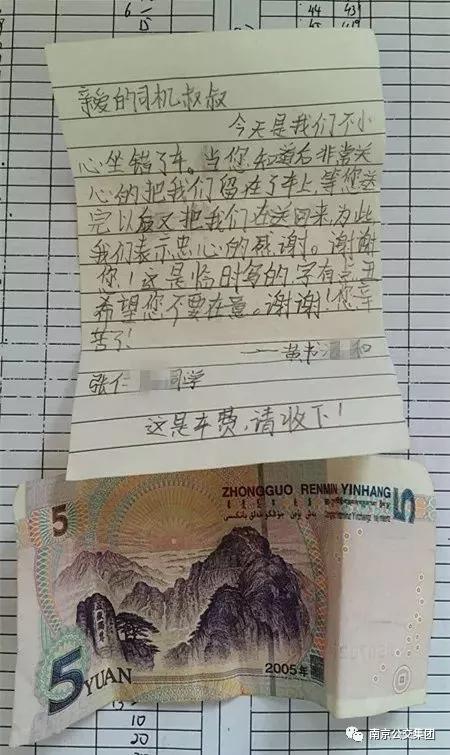 6
15
44 431
45 419
亲爱的司机叔叔
今天是我们不小
心坐错了车。当您知道后非常关
心的把我们留在了车上,等您送
完以后又把我们在送回来,为此
我们表示忠心的感谢。谢谢
您!这是临时写的,字有点丑
希望您不要在意。谢谢!您辛
苦了!
——黄书 和
张仁 同学
这是车费,请收下!
ZHONGGUO RENMIN YINHANG
5
5
5 YUAN
2005年
10
20
20
南京公交集团